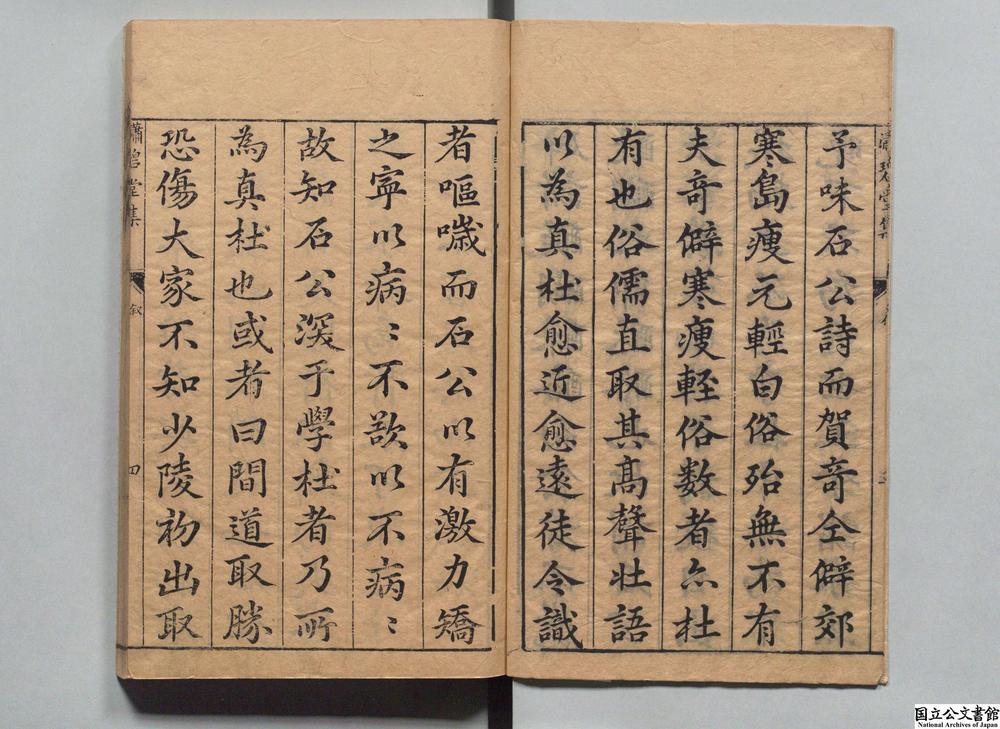 予味石公詩而賀奇仝僻郊
寒島瘦元輕白俗殆無不有
夫奇僻寒瘦輕俗數者亦杜
有也俗儒直取其高聲壯語
以為真杜愈近愈遠徒令識
者嘔噦而石公以有激力矯
之寧以病〻不欲以不病〻
故知石公深于學杜者乃所
為真杜也或者曰間道取勝
恐傷大家不知少陵初出取
瀟碧堂集
敘
四
国立公文書館
National Archives of Japan